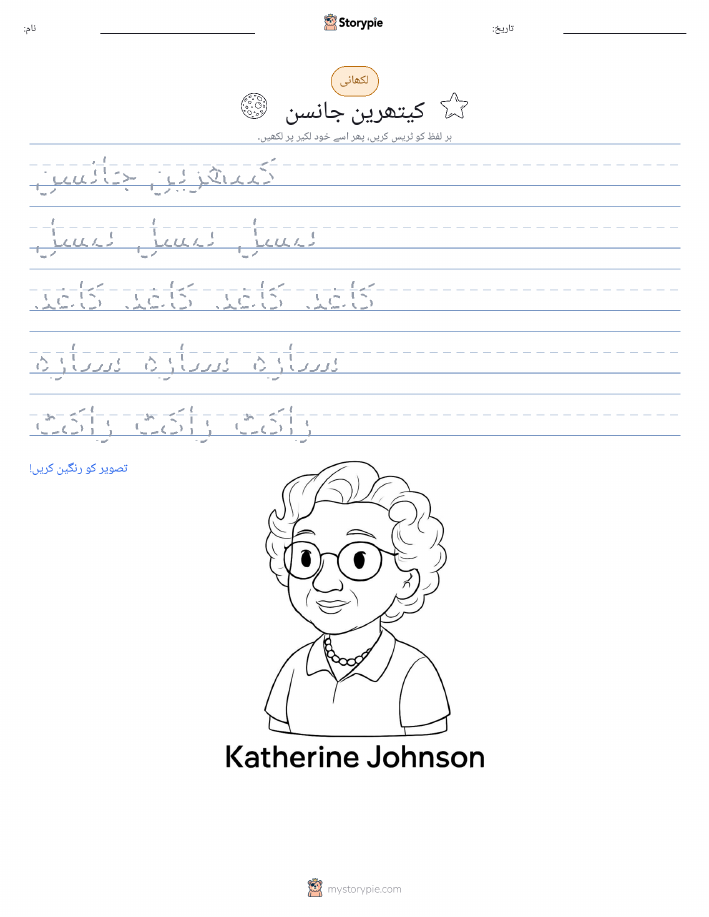 نام:
Storypie
تاریخ:
لکھائی
کیتھرین جانسن
ہر لفظ کو ٹریس کریں، پھر اسے خود لکیر پر لکھیں۔
کیتھرین جانسن
پنسل پنسل پنسل
کاغذ کاغذ کاغذ کاغذ
ستارہ ستارہ ستارہ
راکٹ راکٹ راکٹ
تصویر کو رنگین کریں!
Katherine Johnson
mystorypie.com